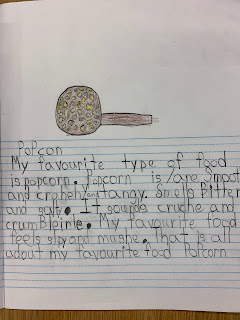 PoPcon
My favourite type of food
is popcorn. Popcorn is /are
and and tangy. Smells Bitter
and It sounds cruche and
My favourite food
feels and mushe. That is all
about my favourite food Popcorn